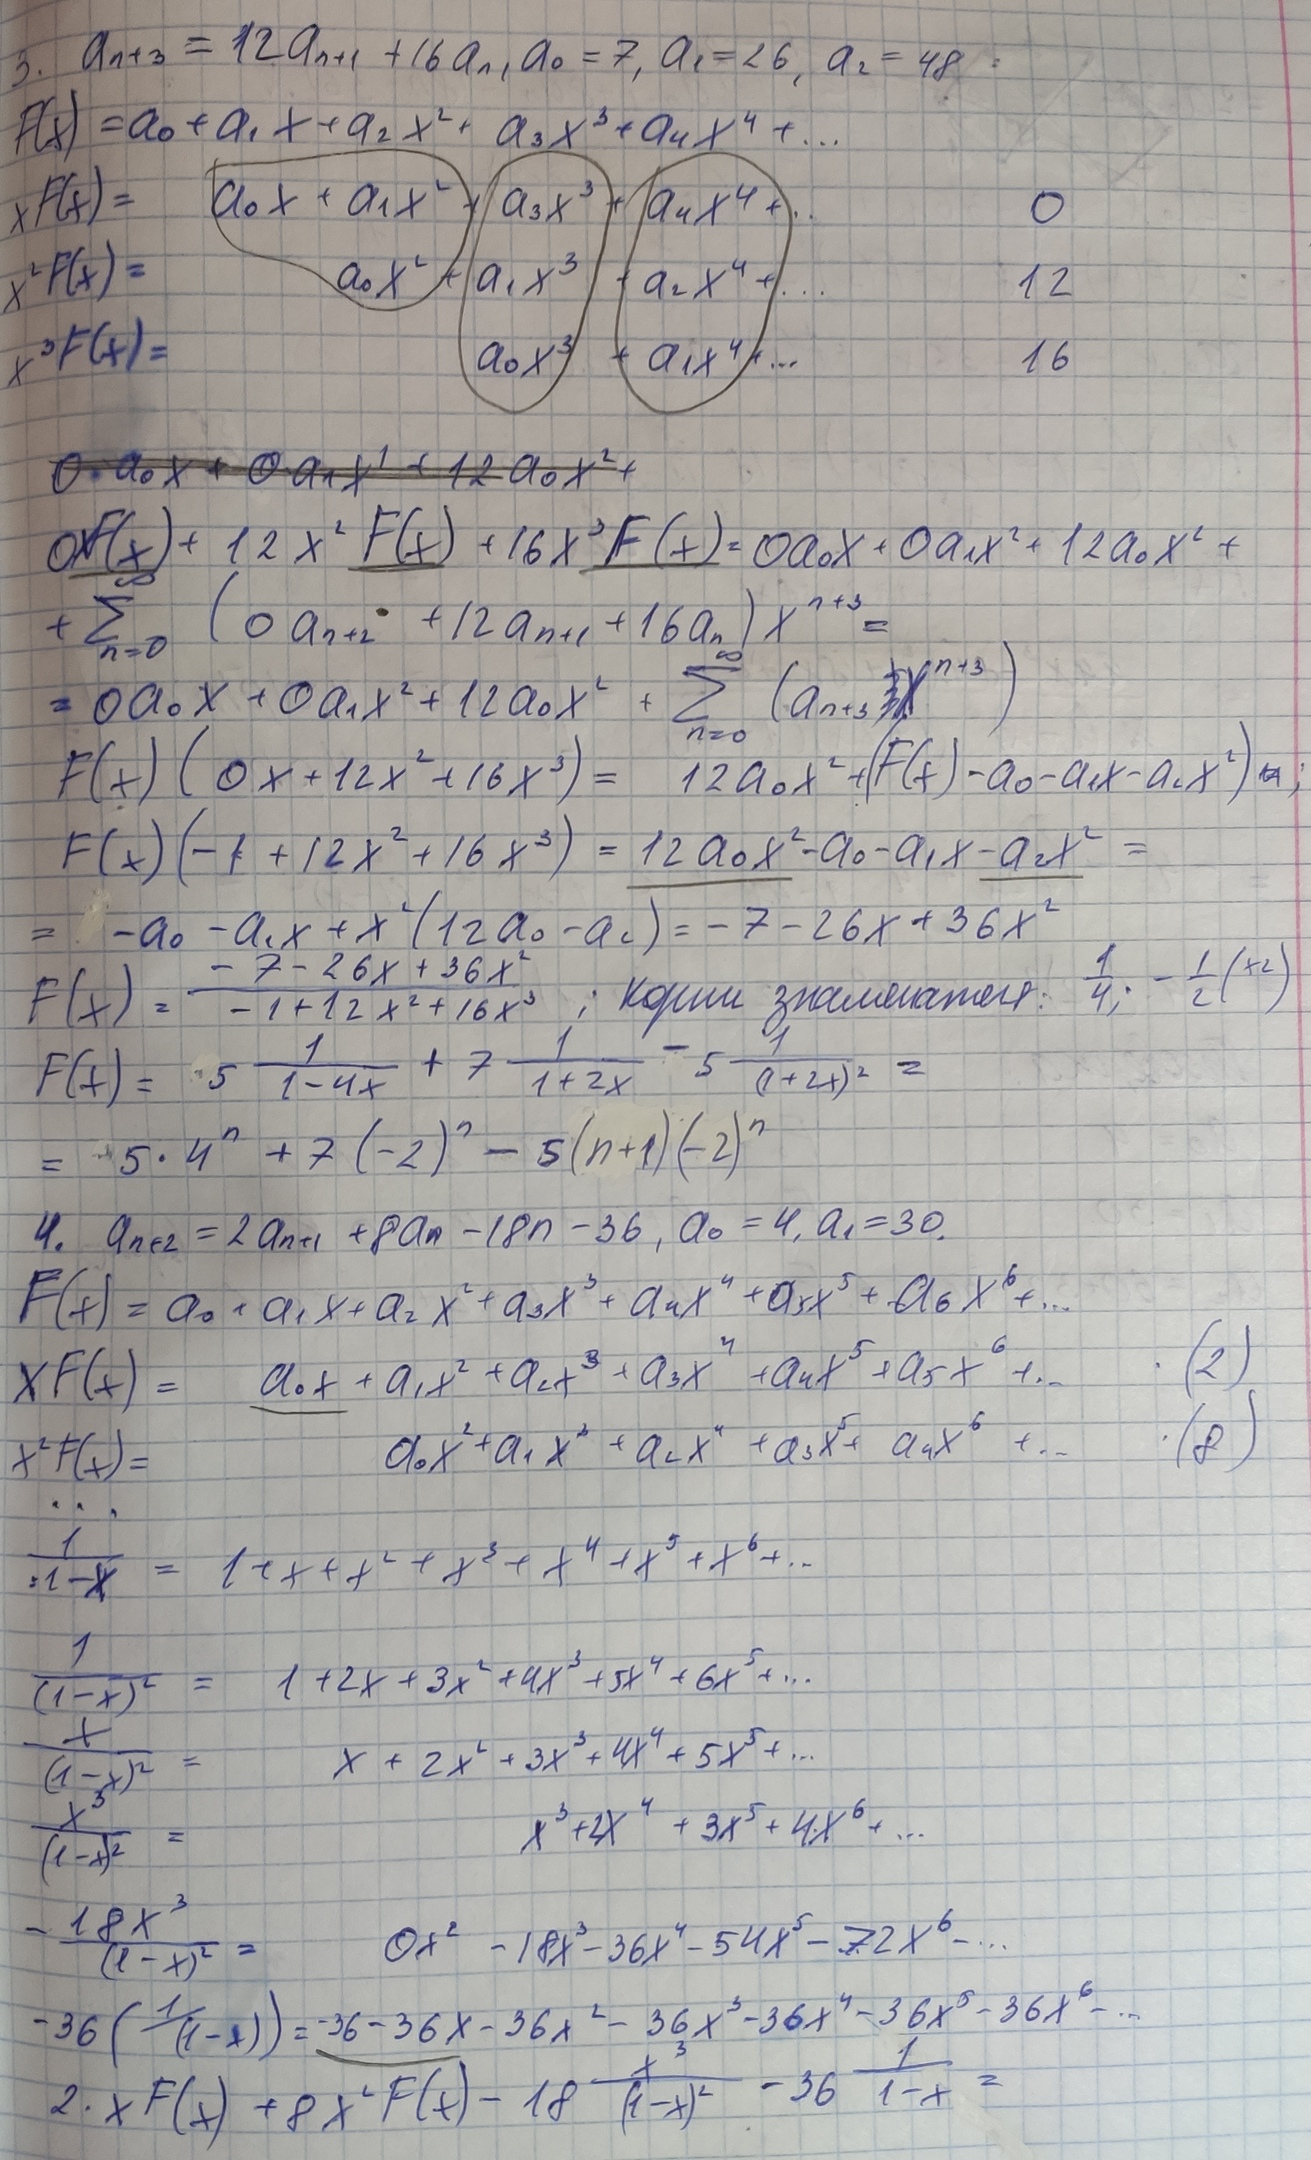 3. a_{n+3} = 12a_{n+1} + 16a_n, a_0 = 7, a_1 = 26, a_2 = 48.
F(x) = a_0 + a_1x + a_2x^2 + a_3x^3 + a_4x^4 + ...
xF(x) = a_0x + a_1x^2 + a_3x^3 + a_4x^4 + ... 0
x^2F(x) = a_0x^2 + a_1x^3 + a_2x^4 + ... 12
x^3F(x) = a_0x^3 + a_1x^4 + ... 16
0·a_0x + 0·a_1x^1 + 12a_0x^2 +
0xF(x) + 12x^2F(x) + 16x^3F(x) = 0a_0x + 0a_1x^2 + 12a_0x^2 +
+ \sum_{n=0}^{∞} (0a_{n+2} + 12a_{n+1} + 16a_n)x^{n+3} =
= 0a_0x + 0a_1x^2 + 12a_0x^2 + \sum_{n=0}^{∞} (a_{n+3}x^{n+3})
F(x)(0x + 12x^2 + 16x^3) = 12a_0x^2 + (F(x) - a_0 - a_1x - a_2x^2);
F(x)(-1 + 12x^2 + 16x^3) = 12a_0x^2 - a_0 - a_1x - a_2x^2 =
= -a_0 - a_1x + x^2(12a_0 - a_2) = -7 - 26x + 36x^2
F(x) = \frac{-7 - 26x + 36x^2}{-1 + 12x^2 + 16x^3}; Корни знаменателя: \frac{1}{4}; -\frac{1}{2}(x2)
F(x) = 5 \frac{1}{1-4x} + 7 \frac{1}{1+2x} - 5 \frac{1}{(1+2x)^2} =
= 5·4^n + 7(-2)^n - 5(n+1)(-2)^n
4. a_{n+2} = 2a_{n+1} + 8a_n - 18n - 36, a_0 = 4, a_1 = 30.
F(x) = a_0 + a_1x + a_2x^2 + a_3x^3 + a_4x^4 + a_5x^5 + a_6x^6 + ...
xF(x) = a_0x + a_1x^2 + a_2x^3 + a_3x^4 + a_4x^5 + a_5x^6 + ... ·(2)
x^2F(x) = a_0x^2 + a_1x^3 + a_2x^4 + a_3x^5 + a_4x^6 + ... ·(8)
...
\frac{1}{1-x} = 1 + x + x^2 + x^3 + x^4 + x^5 + x^6 + ...
\frac{1}{(1-x)^2} = 1 + 2x + 3x^2 + 4x^3 + 5x^4 + 6x^5 + ...
\frac{x}{(1-x)^2} = x + 2x^2 + 3x^3 + 4x^4 + 5x^5 + ...
\frac{x^3}{(1-x)^2} = x^3 + 2x^4 + 3x^5 + 4x^6 + ...
-\frac{18x^3}{(1-x)^2} = 0x^2 - 18x^3 - 36x^4 - 54x^5 - 72x^6 - ...
-36(1/(1-x)) = -36 - 36x - 36x^2 - 36x^3 - 36x^4 - 36x^5 - 36x^6 - ...
2·xF(x) + 8x^2F(x) - 18 \frac{x^3}{(1-x)^2} - 36 \frac{1}{1-x} =